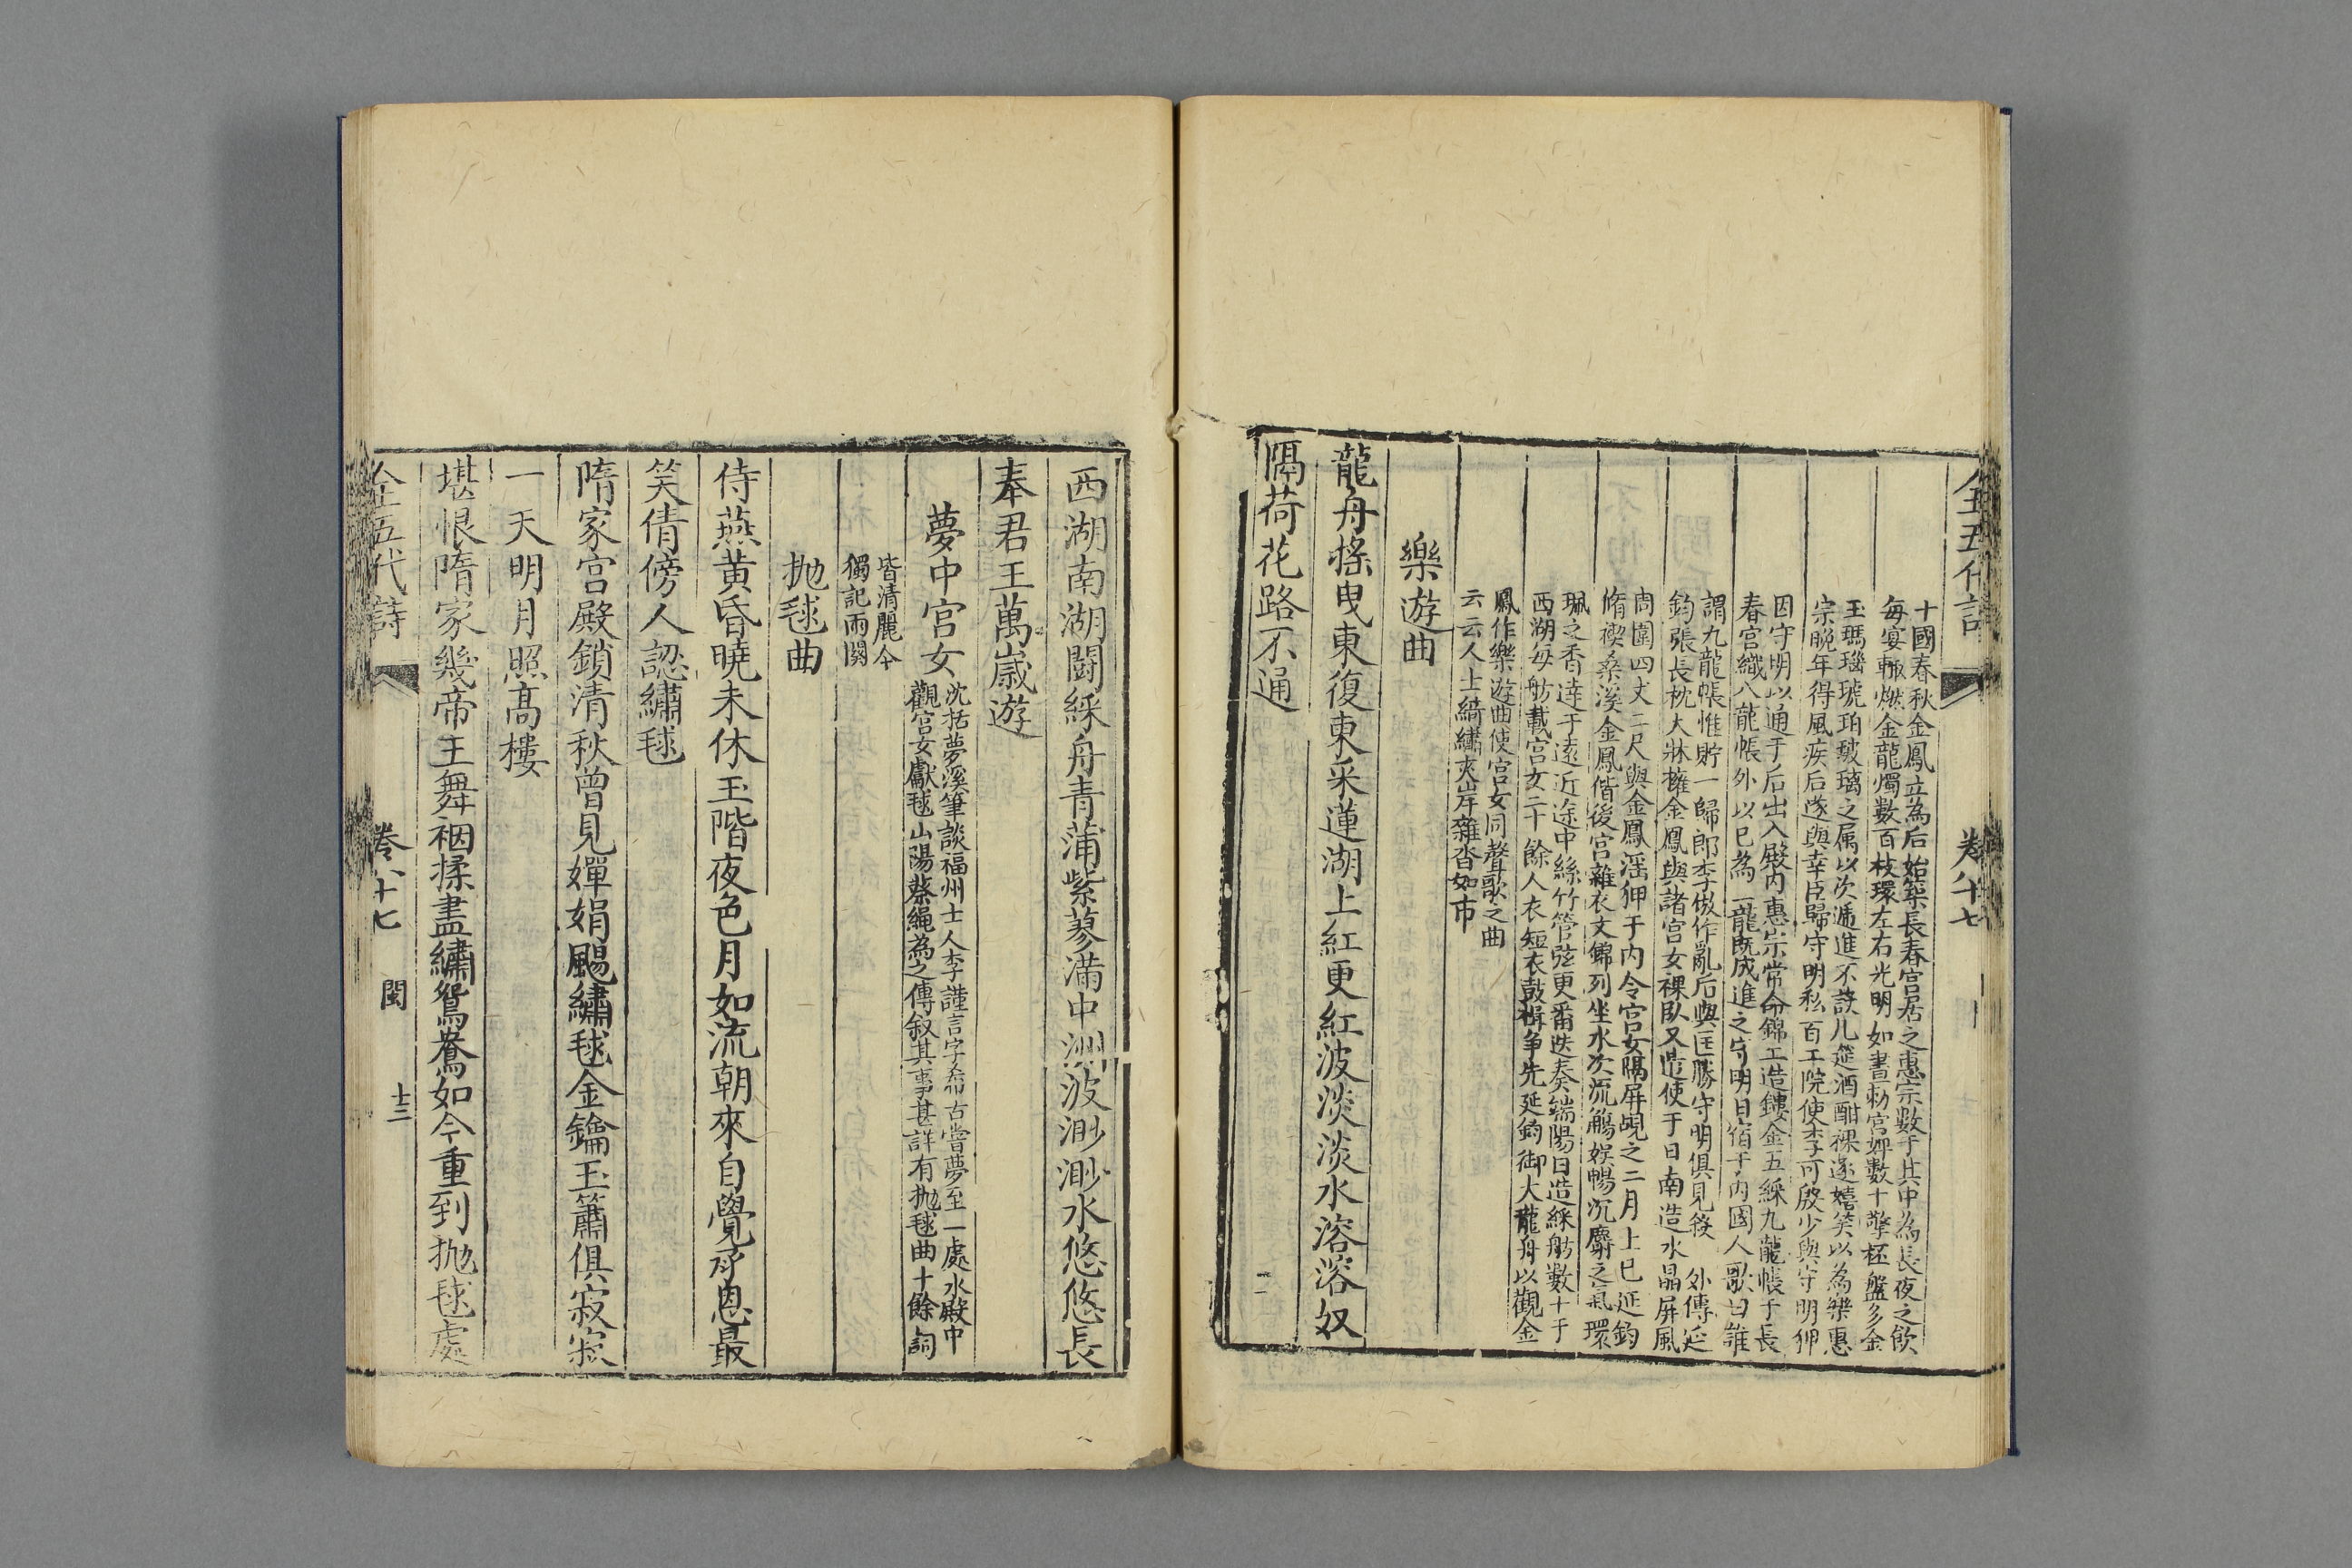 全五代詩
卷八十七
十國春秋金鳳立為后始築長春宮居之惠宗數于其中為長夜之飲
每宴輙燃金龍燭數百枝環左右光明如晝勑宮婢數十擎杯盤多金
玉瑪瑙琥珀玻璃之属以次遞進不設几筵酒酣裸逐嬉笑以為樂惠
宗晩年得風疾后遂與幸臣歸守明私百工院使李可殷少與守明狎
因守明以通于后出入殿内惠宗常命錦工造鏤金五綵九龍帳于長
春宮織八龍帳外以巳為一龍既成進之守明日宿于内國人歌曰誰
謂九龍帳惟貯一歸郎李倣作亂后與匡勝守明俱見殺 外傳延
鈞張長枕大牀擁金鳳與諸宮女裸臥又遣使于日南造水晶屏風
周圍四丈二尺與金鳳滛狎于内令宮女隔屏覘之二月上巳延鈞
脩禊桑溪金鳳偕後宮雜衣文錦列坐水次流觴娱暢沉麝之氣環
珮之香達于遠近途中絲竹管弦更番迭奏端陽日造綵舫數十于
西湖每舫載宮女二十餘人衣短衣鼓楫争先延鈞御大龍舟以觀金
鳳作樂遊曲使宮女同聲歌之曲
云云人士綺繡夾岸雜沓如市
樂遊曲
龍舟搖曳東復東采蓮湖上紅更紅波淡淡水溶溶奴
隔荷花路不通
西湖南湖鬬綵舟青蒲紫蓼滿中洲波渺渺水悠悠長
奉君王萬歲遊
夢中宮女
沈括夢溪筆談福州士人李謹言字希古嘗夢至一處水殿中
觀宮女戲毬山陽蔡繩為之傳叙其事甚詳有抛毬曲十餘詞
皆清麗今
獨記兩闋
抛毬曲
侍燕黄昏曉未休玉階夜色月如流朝來自覺承恩最
笑倩傍人認繡毬
隋家宮殿鎖清秋曾見嬋娟颺繡毬金鑰玉簫俱寂寂
一天明月照高樓
堪恨隋家幾帝王舞裀揉盡繡鴛鴦如今重到抛毬處
全五代詩
卷八十七
閩
十三